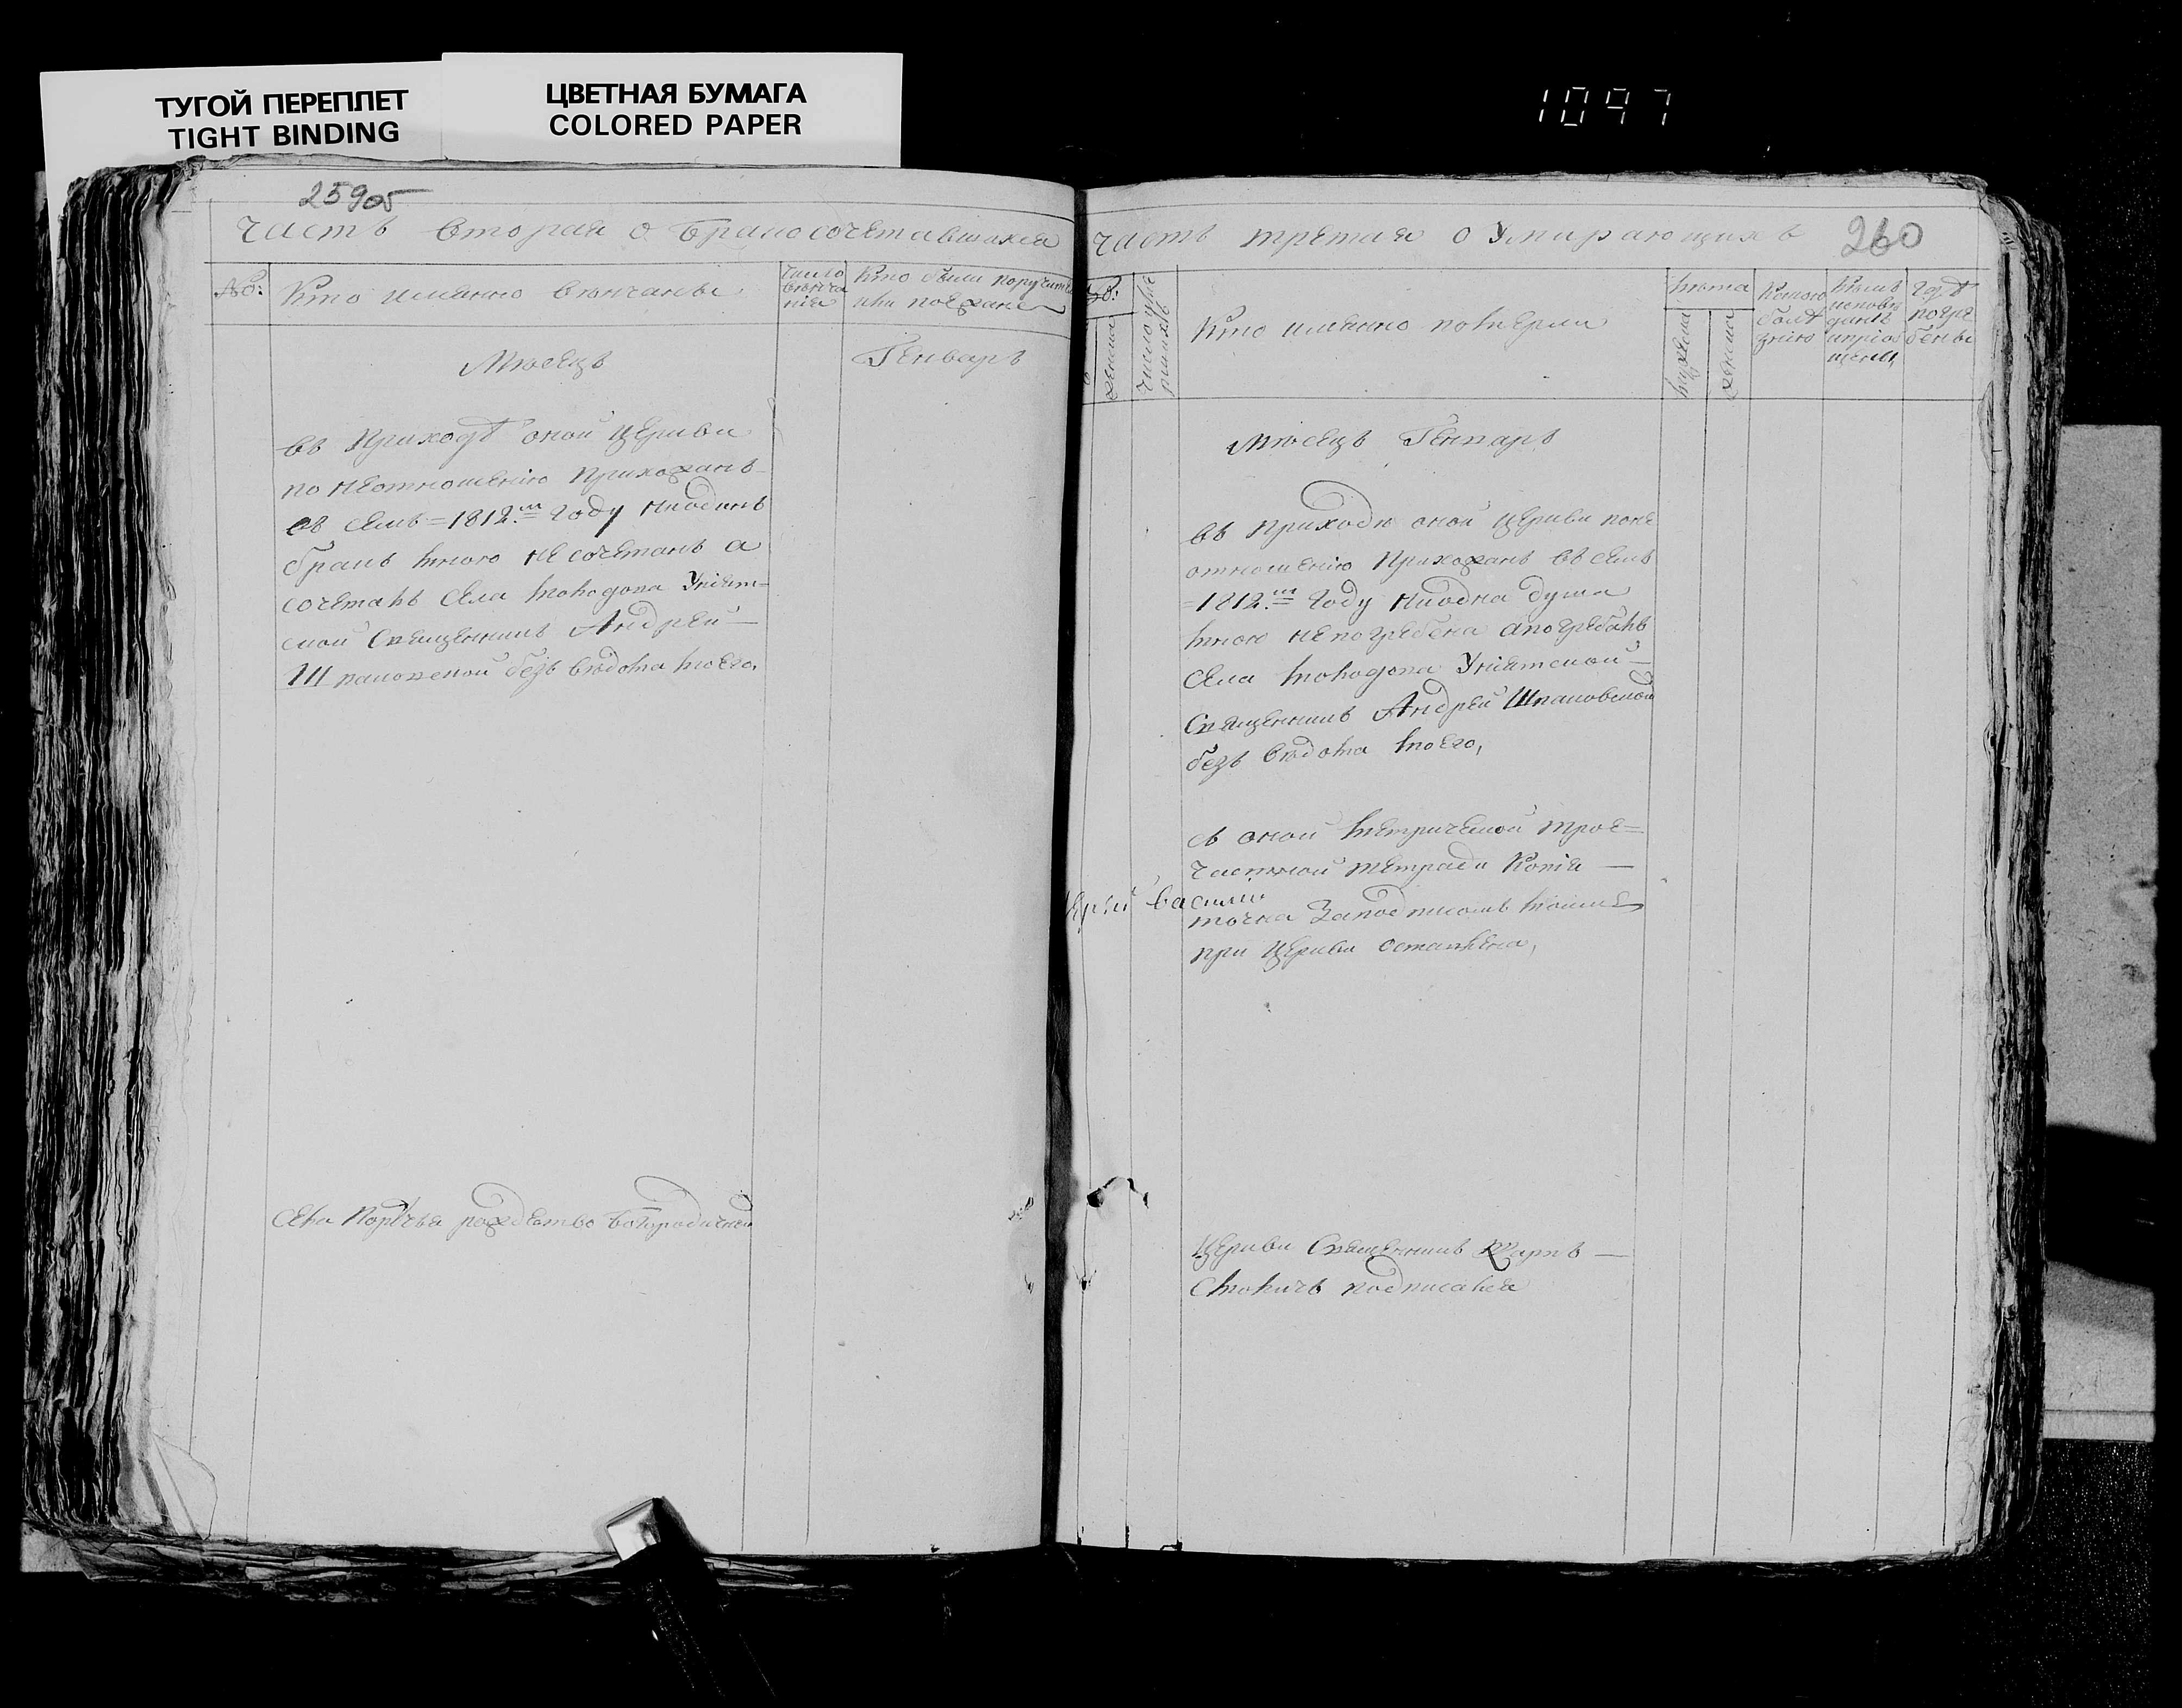 ТУГОЙ ПЕРЕПЛЕТ
TIGHT BINDING
ЦВЕТНАЯ БУМАГА
COLORED PAPER
1097
259об
Часть вторая о бракосочетавшихся
№:
Кто имянно венчаны
число
венча
нія
Кто были поручите
ли поезжане
Месецъ
Генваръ
въ приходѣ оной церкви
по неотношенію прихожанъ
въ семъ = 1812.м году ниодинъ
бракъ мною не сочетанъ а
сочеталъ села Молодова Уніят-
ской священникъ Андрей —
Шпаковской безъ вѣдома моего,
Села Порѣчья рождество Богородичной
Часть третая о умирающихъ
260
женска
Число умѣ
ршихъ
Кто имянно померли
лѣта
мужеска
женска
Какою
болѣ
знію
Кѣмъ
исповѣ
даны
и пріоб
щены
гдѣ
погре
бены
Месецъ Генваръ
въ приходѣ оной церкви поне
отношенію прихожанъ въ семъ
= 1812.м году ниодна душа
мною непогребена а погребалъ
села Молодова Уніятской —
священникъ Андрей Шпаковской
безъ вѣдома моего,
съ оной метрической трое=
частной тетради копія —
Василій
точна за подписомъ моимъ
при церкви оставлена,
Церкви священникъ Карпъ —
Смоличъ подписался